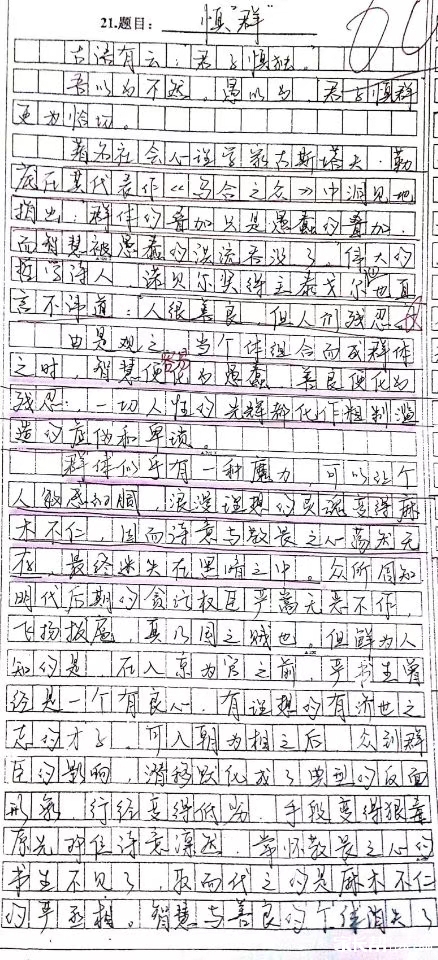 21.题目： 慎“群”
古语有云：君子慎独。
吾以为不然，愚以为，君子慎群
更为恰切。
著名社会心理学家古斯塔夫·勒
庞在其代表作《乌合之众》中洞见地
指出：群体的叠加只是愚蠢的叠加，
而智慧被愚蠢的洪流吞没了。伟大的
哲学诗人，诺贝尔奖得主泰戈尔也直
言不讳道：人很善良，但人们残忍。
由是观之，当个体组合而成群体
之时，智慧便易化为愚蠢，善良便化为
残忍，一切人性的光辉都化作粗制滥
造的虚伪和卑琐。
群体似乎有一种魔力，可以让个
人敏感的胴，浪漫理想的灵魂变得麻
木不仁，因而诗意与敬畏之心荡然无
存，最终迷失在黑暗之中。众所周知
明代后期的贪污权臣严嵩无恶不作，
飞扬拔扈，真乃国之贼也。但鲜为人
知的是，在入京为官之前，严书生曾
经是一个有良心，有理想的有济世之
志的才子。可入朝为相之后，众到群
臣的影响，潜移默化成了典型的反面
形象，行经变得低劣，手段变得狠毒
原先那位诗意漂然，常怀敬畏之心的
书生不见了，取而代之的是麻木不仁
的严丞相。智慧与善良的个体消失了